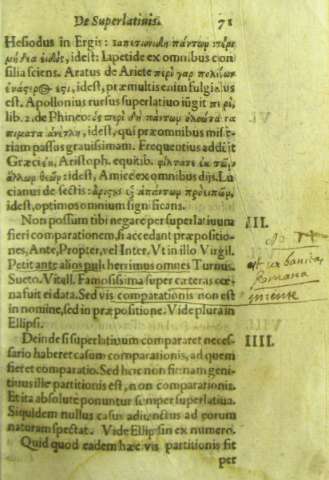 De Superlatiuis. 71
Hesiodus in Ergis: ἰαπετιονίδη πάντων πέρι
μήδεα εἰδώς, idest: Iapetide ex omnibus con
silia sciens. Aratus de Ariete
est. Apollonius rursus superlatiuo iũgit περὶ,
lib. 2. de Phineo: ὃς περὶ δὴ πάντων
πήματα ἀνέτλη, idest, qui præ omnibus mise
riam passus grauissimam. Frequentius addit
Græci ἐκ, Aristoph. equitib. φίλτατε ἐκ τῶν
ἄλλων θεῶν: idest, Amice ex omnibus dijs. Lu
cianus de sectis: ἄριστοι ἐξ ἁπάντων
idest, optimos omnium significans.
Non possum tibi negare per superlatiuum III.
fieri comparationem, si accedant præpositio
nes, Ante, Propter, vel Inter. Vt in illo Virgil.
Petit ante alios pulcherrimus omnes Turnus.
Sueto. Vitull. Famosissima super cæteras cœ
na fuit ei data. Sed vis comparationis non est
in nomine, sed in præpositione. Vide plura in
Ellipsi.
Deinde si superlatiuum compararet neces- IIII.
sario haberet casum comparationis, ad quem
fieret comparatio. Sed hero non sit: nam geni
tiuus ille partitionis est, non comparationis.
Et ita absolute ponuntur semper superlatiua.
Siquidem nullus casus adiunctus ad eorum
naturam spectat. Vide Ellipsin ex numero.
Quid quod eadem hæc vis partitionis fit
per